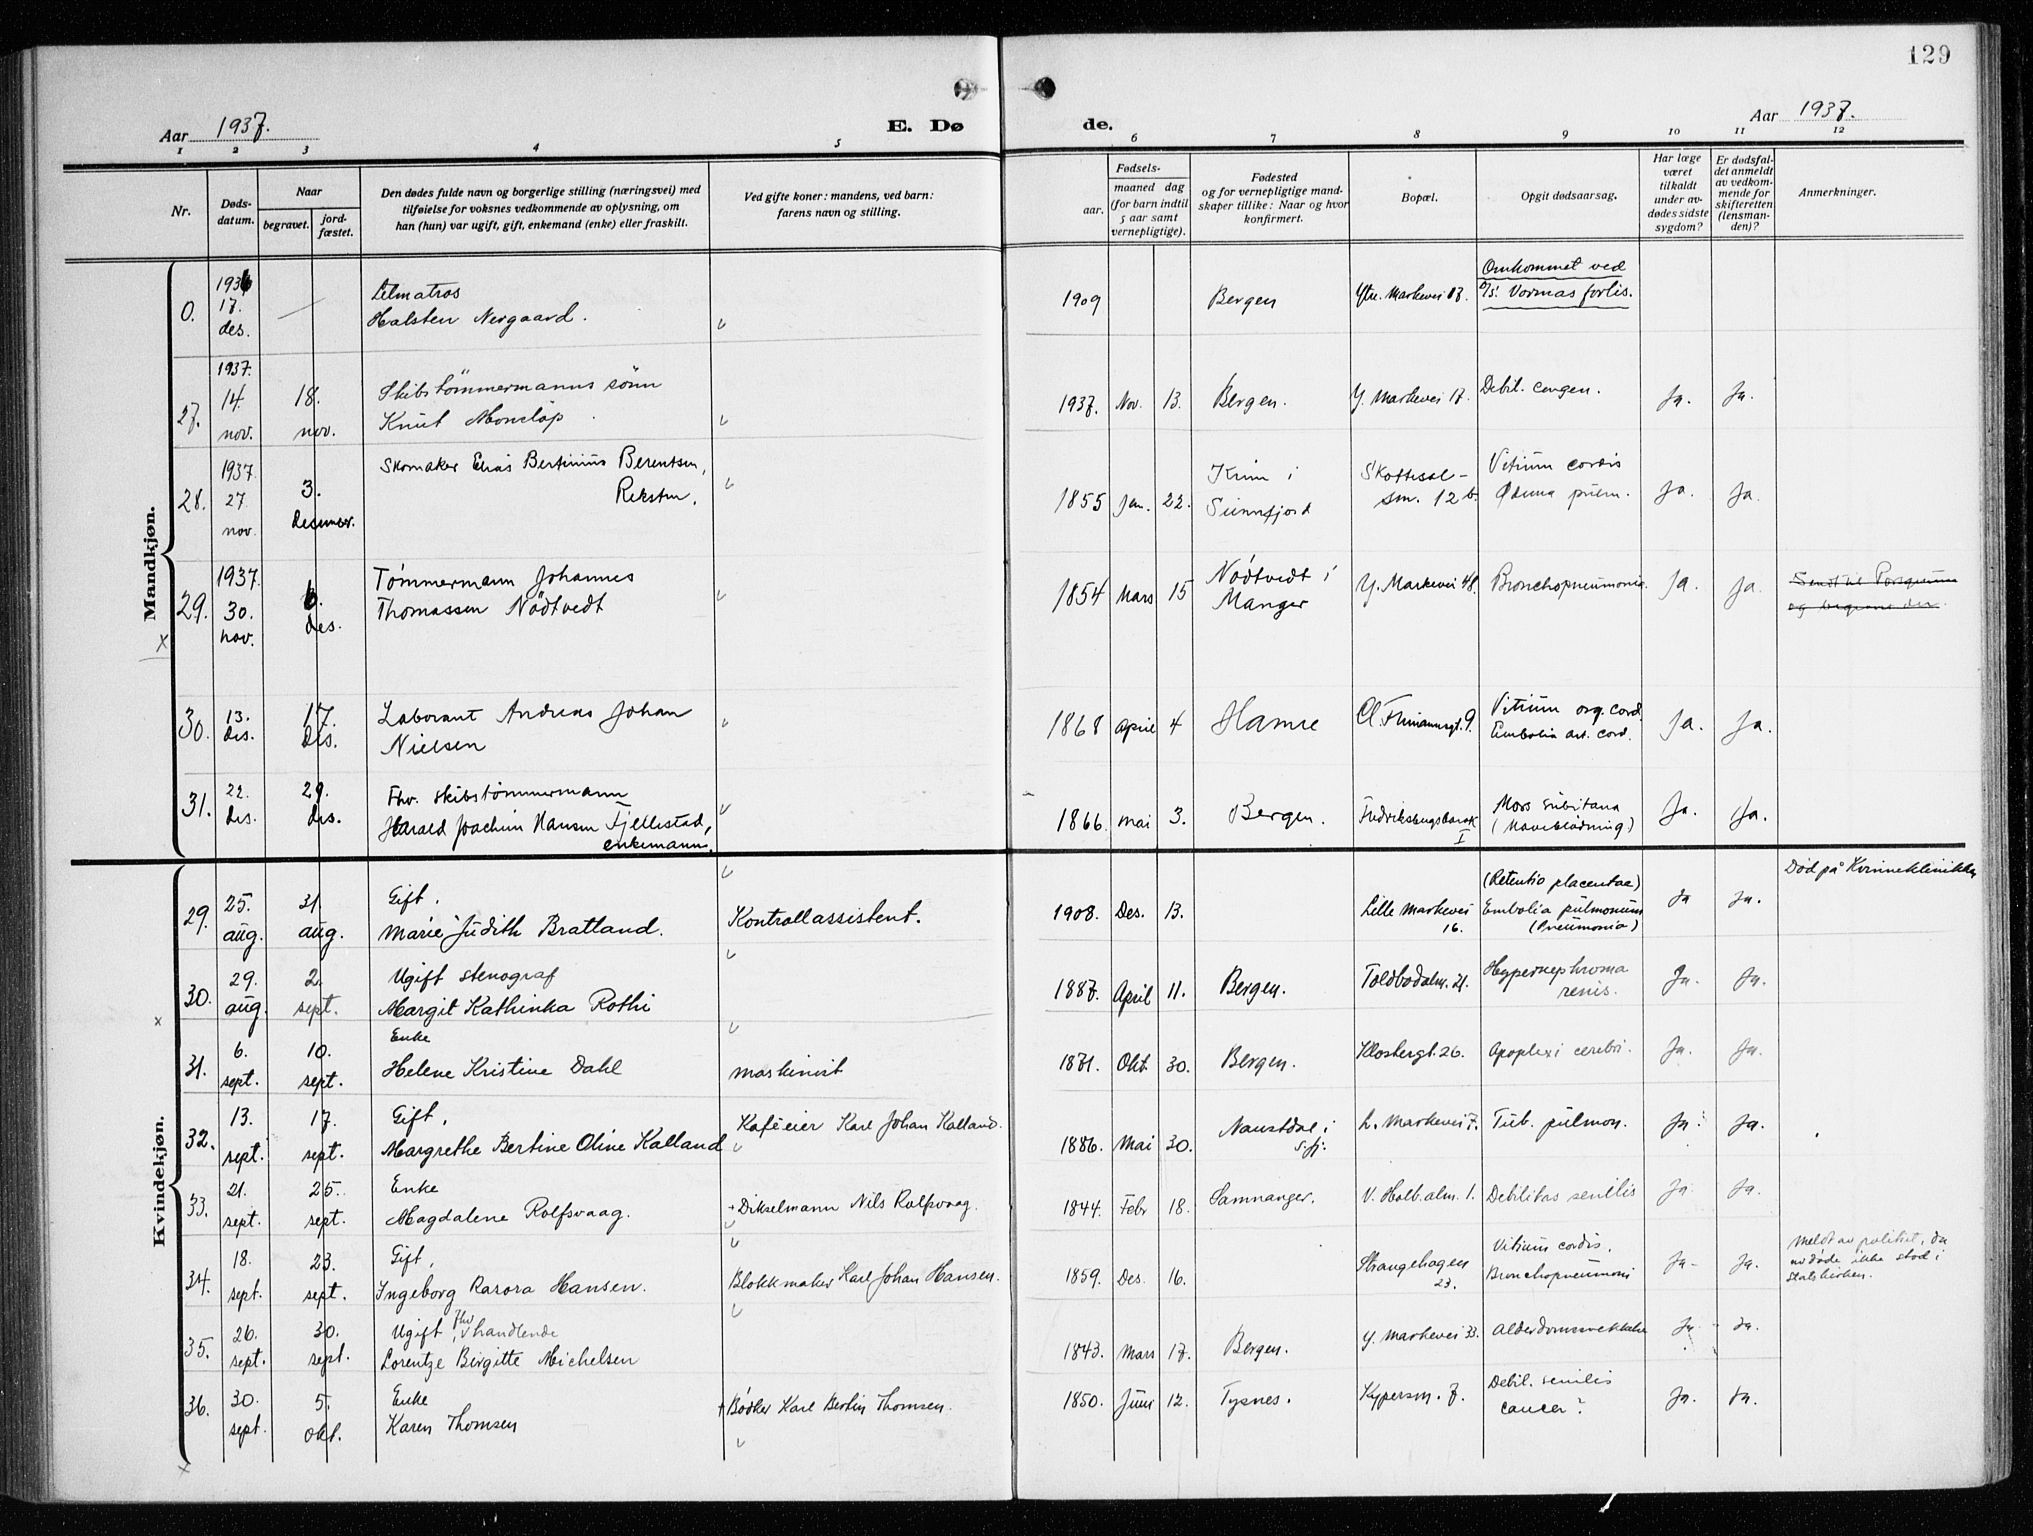 129
Aar 1937. E. Dø de. Aar 1937.
1 2 3 4 5 6 7 8 9 10 11 12
Nr.
Døds-
datum.
Naar
begravet.
jord-
fæstet.
Den dødes fulde navn og borgerlige stilling (næringsvei) med
tilføielse for voksnes vedkommende av oplysning, om
han (hun) var ugift, gift, enkemand (enke) eller fraskilt.
Ved gifte koner: mandens, ved barn:
farens navn og stilling.
Fødsels-
aar.
maaned dag
(for barn indtil
5 aar samt
vernepligtige).
Fødested
og for vernepligtige mand-
skaper tillike: Naar og hvor
konfirmert.
Bopæl.
Opgit dødsaarsag.
Har læge
været
tilkaldt
under av-
dødes sidste
sygdom?
Er dødsfal-
det anmeldt
av vedkom-
mende for
skifteretten
(lensman-
den)?
Anmerkninger.
Mandkjøn.
0.
1936
17.
des.
Letmatros
Halsten Nergaard.
1909
Bergen
Ytre. Markevei 17.
Omkommet ved
Vormas forlis.
27.
1937.
14.
nov.
18.
nov.
Skibstömmermanns sönn
Knut Monclap
1937. Nov. 13.
Bergen.
Y. Markevei 17.
Debil. congen.
Ja. Ja.
28.
1937
27
nov.
3.
Skomaker Elias Bertinius Berentsen
Reksten.
1855 Jan. 22.
Kinn i
Sunnfjord
sm. 12 b.
Vitium cordis
Ja. Ja.
29.
1937.
30.
nov.
6.
des.
Tømmermann Johannes
Thomassen Nödtvedt
1854 Mars 15
Nödtvedt i
Manger
Y. Markevei 48.
Bronchopneumonia.
Ja. Ja.
30.
13.
des.
17.
des.
Laborant Andreas Johan
Nielsen
1868 April 4
Hamre
Vitium org. cord.
Embolia art. cord.
Ja. Ja.
31.
22.
des.
29.
des.
Fhv. skibstømmermann
Harald Joachim Hansen Fjellestad,
enkemann.
1866. mai 3.
Bergen.
I
Mors subitana
(Maveblödning)
Ja. Ja.
Kvindekjøn.
29.
25.
aug.
31.
aug.
Gift,
Marie Judith Bratland.
Kontrollassistent.
1908. Des. 13.
Lille Markevei
16.
(Retentio placentae)
Embolia pulmonum
(Pneumonia)
Ja Ja.
Død på Kvinneklinikken
30.
29.
aug.
2.
sept.
Ugift stenograf
Margit Kathinka Rothi
1887. April 11.
Bergen.
Toldbodalm. 21.
Hypernephroma
renis.
Ja. Ja.
31.
6.
sept.
10.
sept.
Enke
Helene Kristine Dahl
maskinist
1871. Okt. 30.
Bergen.
Klostergt. 26.
Apoplexi cerebri.
Ja. Ja.
32.
13.
sept.
17.
sept.
Gift,
Margrethe Bertine Oline Kalland
Kaféeier Karl Johan Kalland.
1886. Mai 30.
Naustdal i
S.fj.
L. Markevei 7.
Tub. pulmon.
Ja. Ja.
33.
21.
sept.
25.
sept.
Enke
Magdalene Rolfsvaag.
+ Dikselmann Nils Rolfsvaag.
1844. Febr 18.
Samnanger.
V. Holb. alm. 1.
Debilitas senilis
Ja Ja.
34.
18.
sept.
23.
sept.
Gift,
Ingeborg Rasora Hansen.
Blokkmaker Karl Johan Hansen.
1859. Des. 16.
Strangehagen
23.
Vitium cordis.
Bronchopneumoni
Ja Ja.
Meldt av politiet, da
avdøde ikke stod i
statskirken.
35.
26.
sept.
30.
sept.
Ugift, fhv handlende
Lorentze Birgitte Michelsen
1843. Mars 17.
Bergen.
Y. Markevei 33.
Alderdomssvekkelse
Ja Ja.
36.
30.
sept.
5.
okt.
Enke
Karen Thomsen
+ Bødker Karl Berlin Thomsen.
1850. Juni 12.
Tysnes.
Kypersm. 7.
Debil. senilis
cancer?
Ja. Ja.